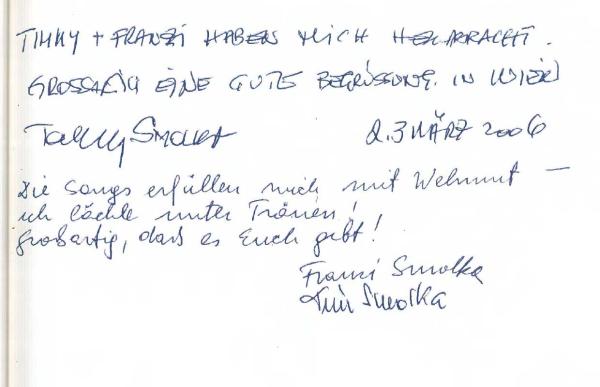 TIMMY + FRANZI HABEN MICH HERGEBRACHT.
GROSSARTIG EINE GUTE BEGRÜSSUNG. IN WIEN
Smolka 2.3 MÄRZ 2006
Die Songs erfüllen mich mit Wehmut —
ich lächle unter Tränen!
großartig, dass es Euch gibt!
Franzi Smolka
Tim Smolka